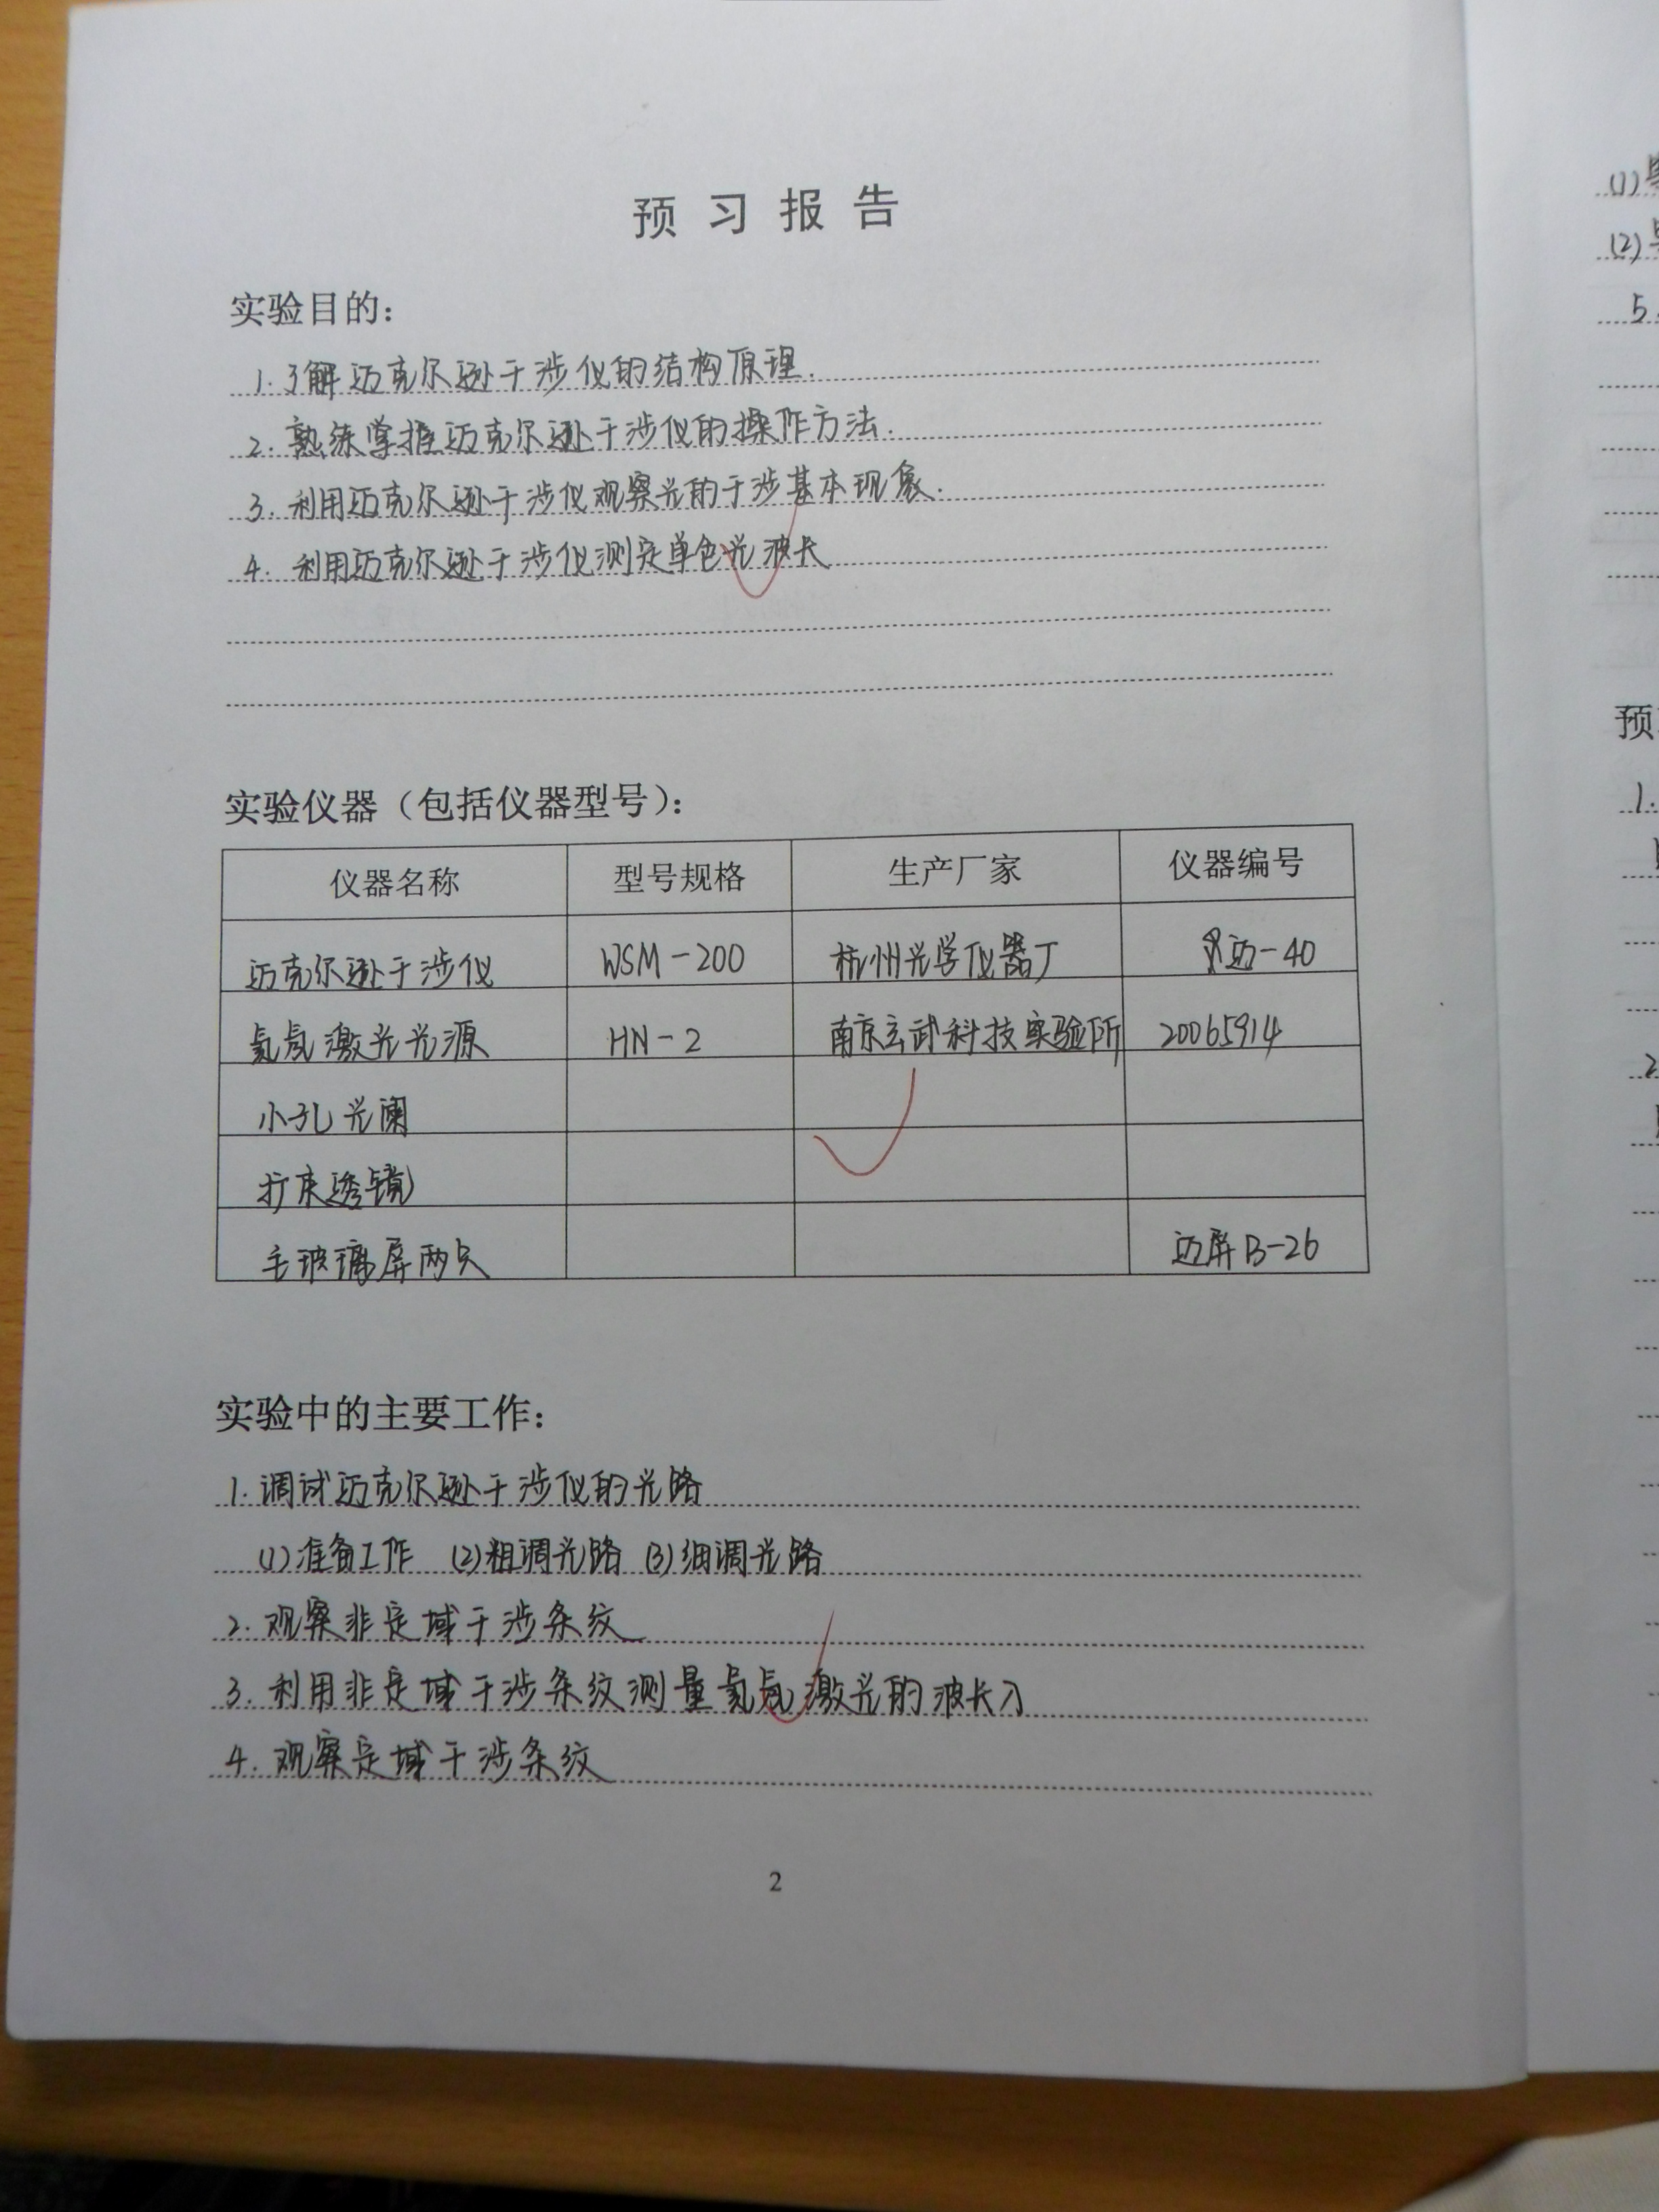 预习报告
实验目的：
1. 了解迈克尔逊干涉仪的结构原理.
2. 熟练掌握迈克尔逊干涉仪的操作方法.
3. 利用迈克尔逊干涉仪观察光的干涉基本现象.
4. 利用迈克尔逊干涉仪测定单色光波长
实验仪器（包括仪器型号）：
仪器名称 型号规格 生产厂家 仪器编号
迈克尔逊干涉仪 WSM-200 杭州光学仪器厂 迈-40
氦氖激光光源 HN-2 南京玄武科技实验所 20065914
小孔光阑
扩束透镜
毛玻璃屏两只 迈屏B-26
实验中的主要工作：
1. 调试迈克尔逊干涉仪的光路
(1)准备工作 (2)粗调光路 (3)细调光路
2. 观察非定域干涉条纹
3. 利用非定域干涉条纹测量氦氖激光的波长λ
4. 观察定域干涉条纹
2
(1)
(2)
5.
预
1.
2